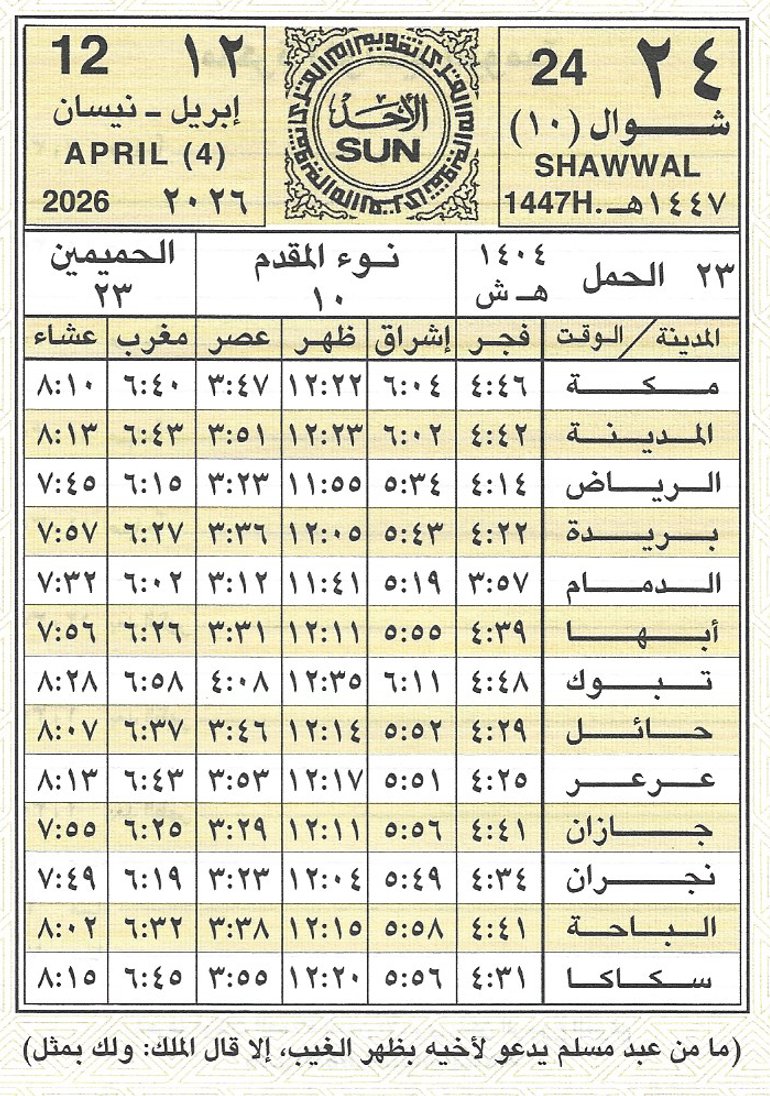 ٢٤ 24
شوال (١٠)
SHAWWAL
١٤٤٧هـ. 1447H
تقويم أم القرى
الأحد
SUN
١٢ 12
إبريل - نيسان
APRIL (4)
٢٠٢٦ 2026
٢٣ الحمل ١٤٠٤ هـ ش
نوء المقدم ١٠
الحميمين ٢٣
المدينة / الوقت فجر إشراق ظهر عصر مغرب عشاء
مكة ٤:٤٦ ٦:٠٤ ١٢:٢٢ ٣:٤٧ ٦:٤٠ ٨:١٠
المدينة ٤:٤٢ ٦:٠٢ ١٢:٢٣ ٣:٥١ ٦:٤٣ ٨:١٣
الرياض ٤:١٤ ٥:٣٤ ١١:٥٥ ٣:٢٣ ٦:١٥ ٧:٤٥
بريدة ٤:٢٢ ٥:٤٣ ١٢:٠٥ ٣:٣٦ ٦:٢٧ ٧:٥٧
الدمام ٣:٥٧ ٥:١٩ ١١:٤١ ٣:١٢ ٦:٠٢ ٧:٣٢
أبها ٤:٣٩ ٥:٥٥ ١٢:١١ ٣:٣١ ٦:٢٦ ٧:٥٦
تبوك ٤:٤٨ ٦:١١ ١٢:٣٥ ٤:٠٨ ٦:٥٨ ٨:٢٨
حائل ٤:٢٩ ٥:٥٢ ١٢:١٤ ٣:٤٦ ٦:٣٧ ٨:٠٧
عرعر ٤:٢٥ ٥:٥١ ١٢:١٧ ٣:٥٣ ٦:٤٣ ٨:١٣
جازان ٤:٤١ ٥:٥٦ ١٢:١١ ٣:٢٩ ٦:٢٥ ٧:٥٥
نجران ٤:٣٤ ٥:٤٩ ١٢:٠٤ ٣:٢٣ ٦:١٩ ٧:٤٩
الباحة ٤:٤١ ٥:٥٨ ١٢:١٥ ٣:٣٨ ٦:٣٢ ٨:٠٢
سكاكا ٤:٣١ ٥:٥٦ ١٢:٢٠ ٣:٥٥ ٦:٤٥ ٨:١٥
(ما من عبد مسلم يدعو لأخيه بظهر الغيب، إلا قال الملك: ولك بمثل)